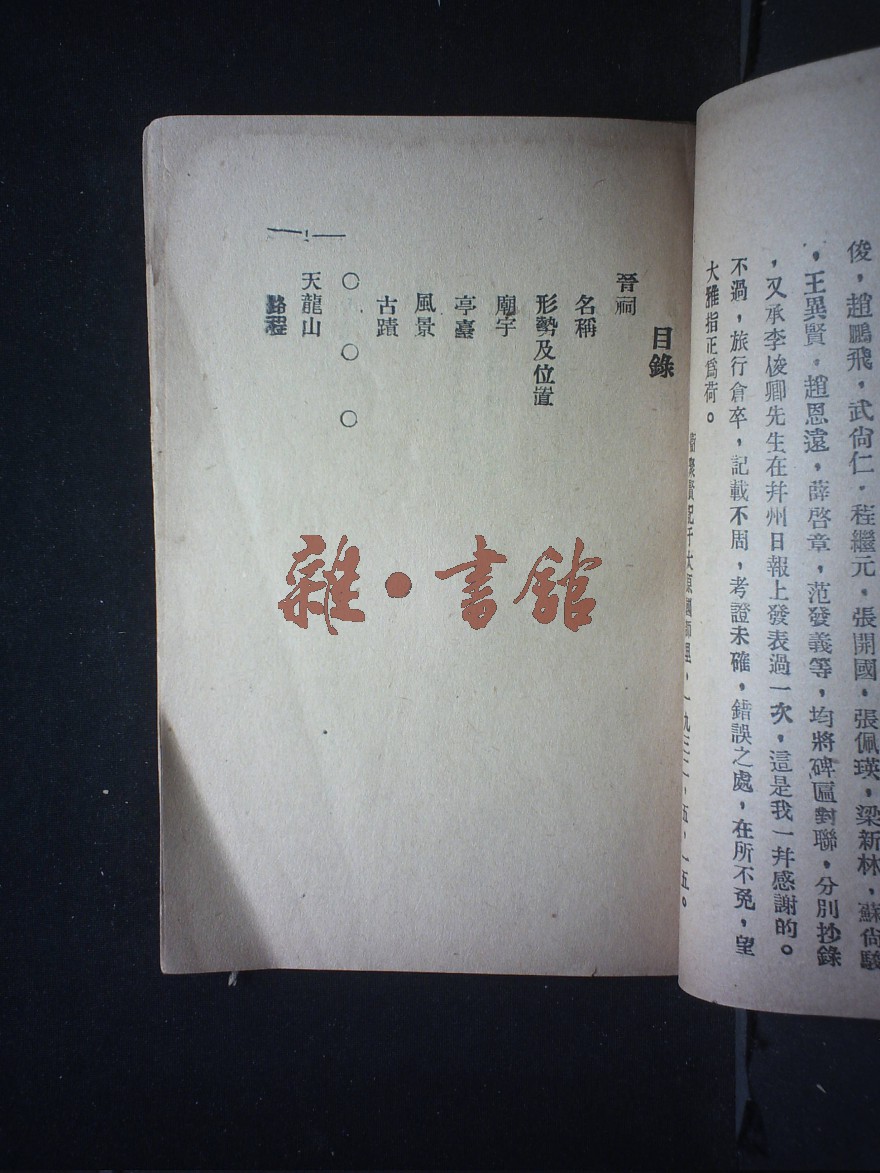 俊，趙鵬飛，武尙仁，程繼元，張開國，張佩瑛，梁新林，蘇尙駿
，王異賢，趙恩遠，薛啓章，范發義等，均將碑匾對聯，分別抄錄
，又承李俊卿先生在幷州日報上發表過一次，這是我一幷感謝的。
不過，旅行倉卒，記載不周，考證未確，錯誤之處，在所不免，望
大雅指正爲荷。
衛聚賢記于太原國師里，一九三二，五，一五。
目錄
晉祠
名稱
形勢及位置
廟宇
亭臺
風景
古蹟
○ ○ ○
天龍山
路程
一
雜·書館